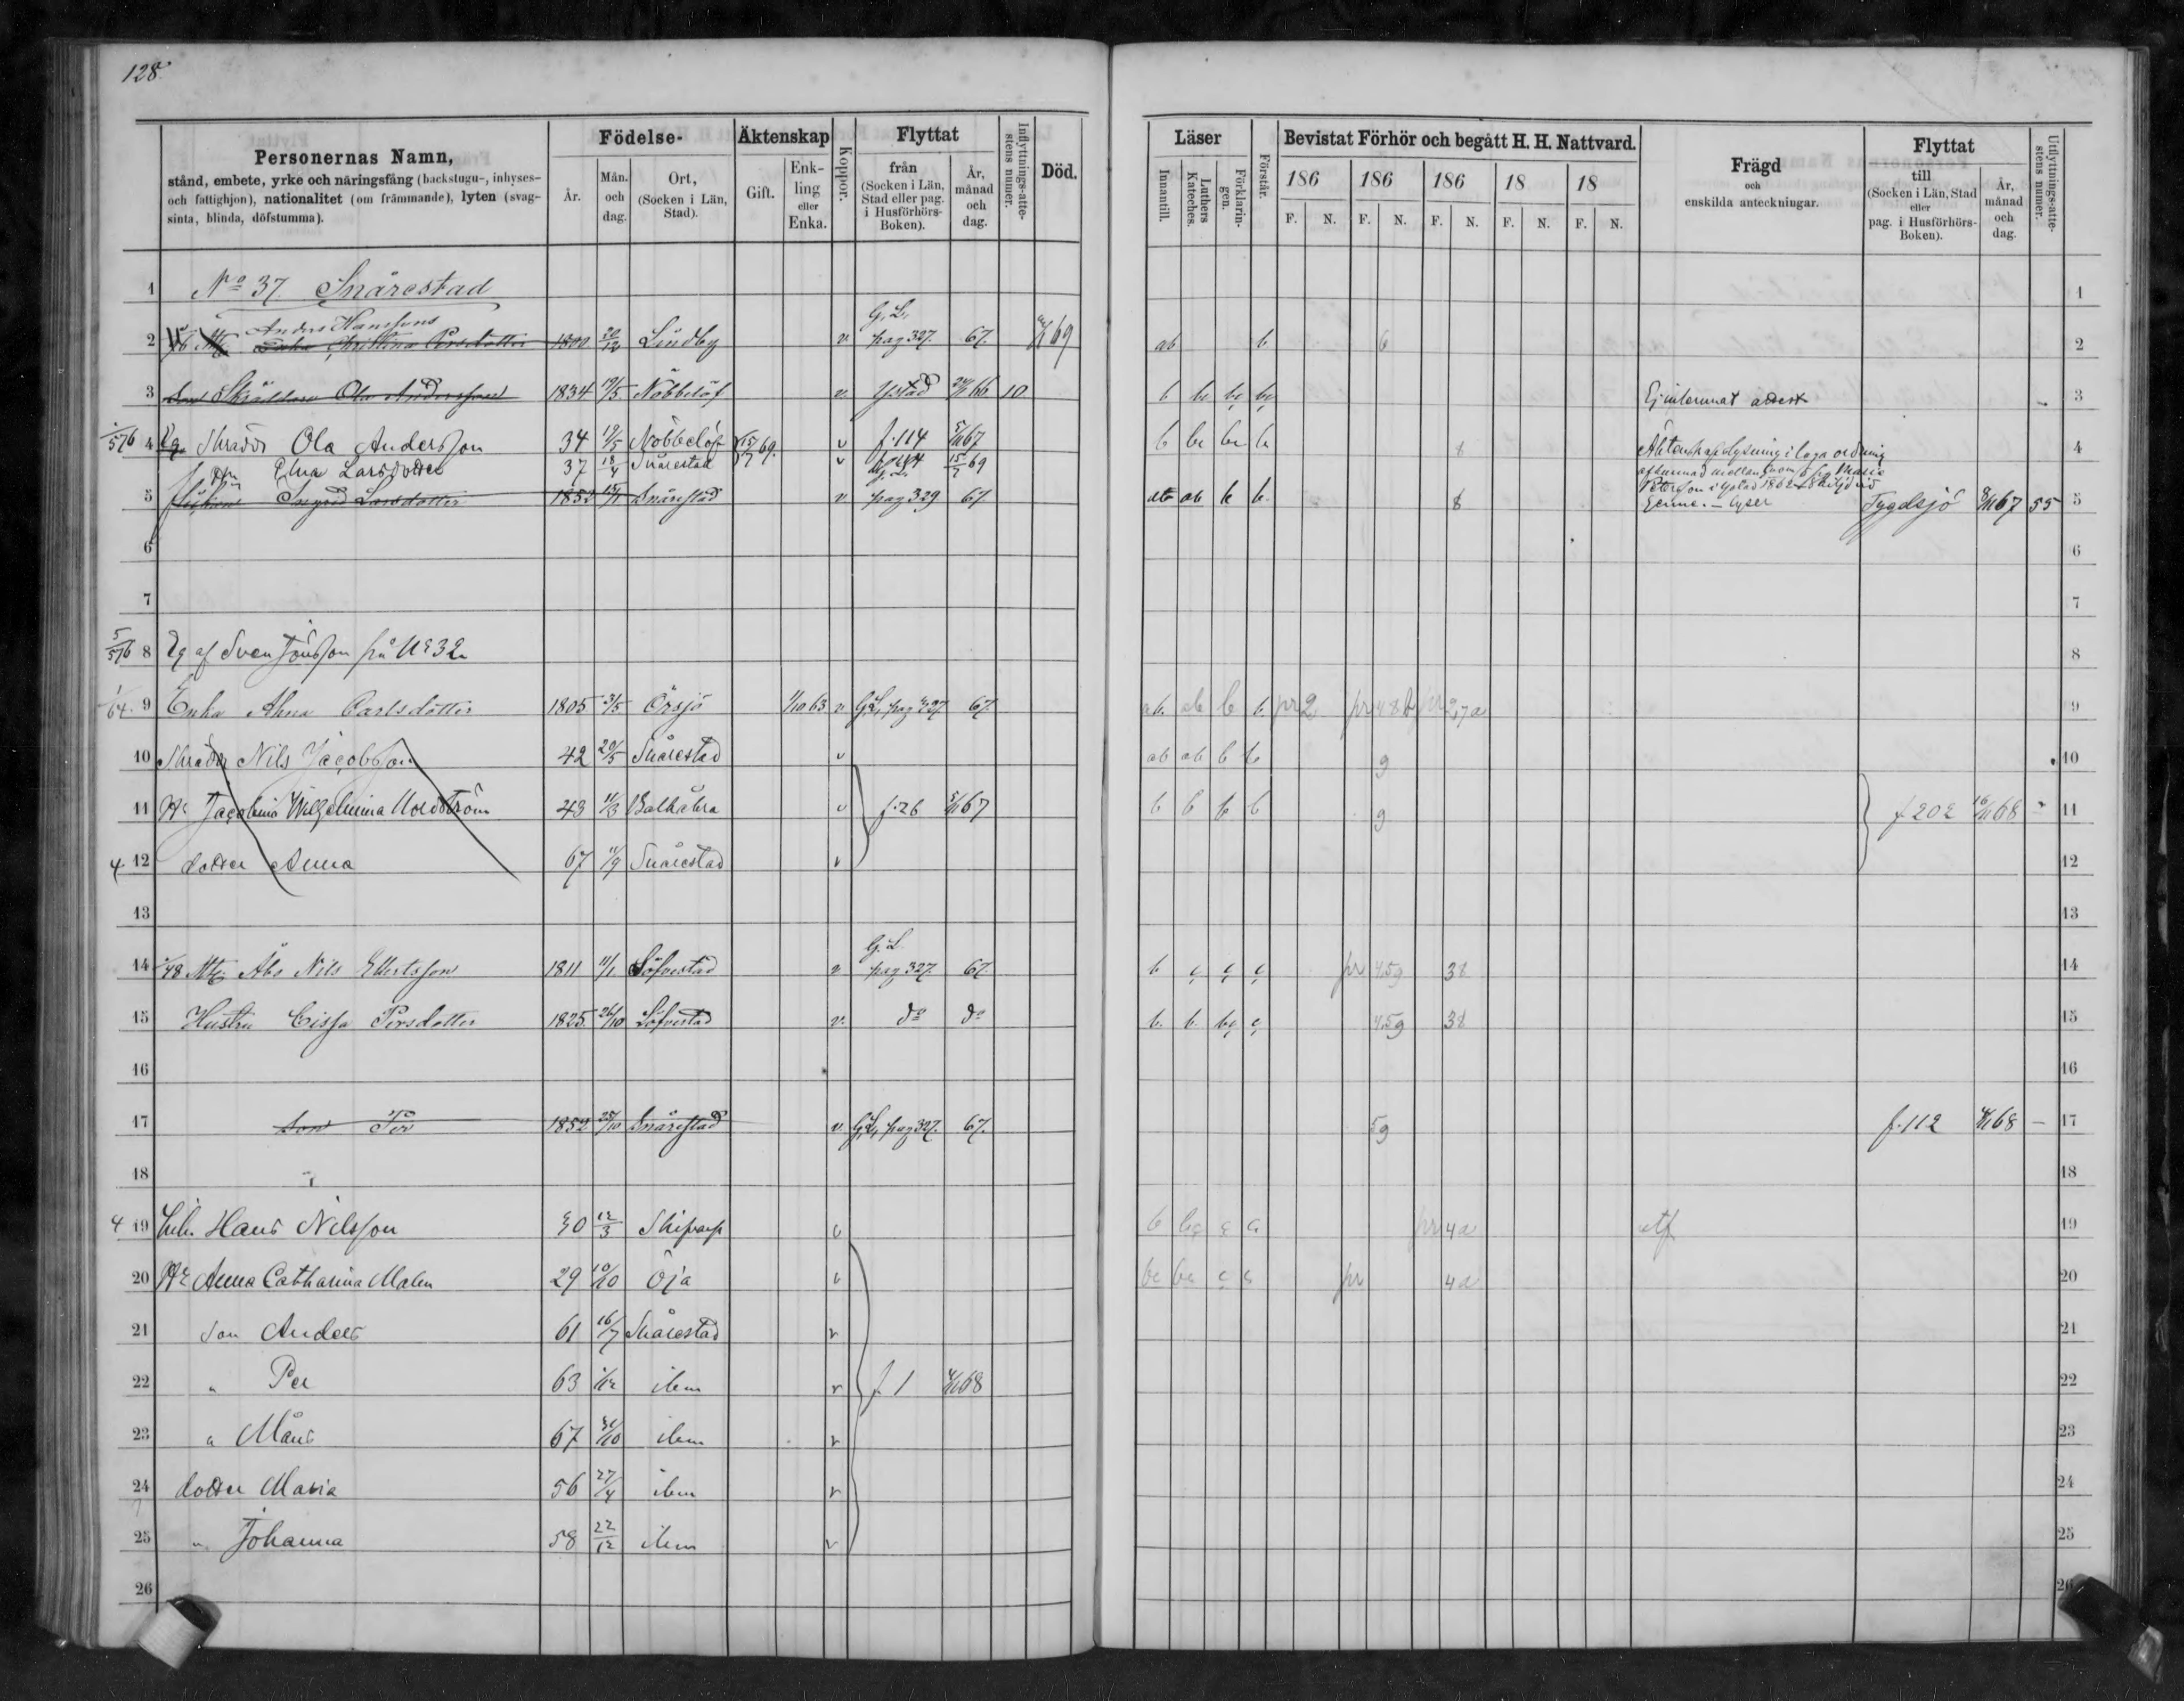 128.
Personernas Namn,
stånd, embete, yrke och näringsfång (backstugu-, inhyses-
och fattighjon), nationalitet (om främmande), lyten (svag-
sinta, blinda, döfstumma).
Födelse-
År.
Mån. och dag.
Ort, (Socken i Län, Stad).
Äktenskap
Gift.
Enkling eller Enka.
Koppor.
Flyttat
från (Socken i Län, Stad eller pag. i Husförhörs-Boken).
År, månad och dag.
Inflyttnings-attestens numer.
Död.
Läser
Innantill.
Luthers Kateches.
Förklaringen.
Förstår.
Bevistat Förhör och begått H. H. Nattvard.
186 186 186 18 18
F. N. F. N. F. N. F. N. F. N.
Frägd
och
enskilda anteckningar.
Flyttat
till
(Socken i Län, Stad
eller
pag. i Husförhörs-
Boken).
År, månad och dag.
Utflyttnings-attestens numer.
1 No 37. Snårestad 1
Anders Hanssons G. L.
2 Enka Christina Persdotter 1800 20/12 Lindby v. pag 327. 67. 69 ab b 6 2
3 Son Skräddare Ola Andersson 1834 19/5 Nöbbelöf v. Ystad 66 10 b bc bc bc Ej inlemnat attest 3
576 4 Eg. Skradd. Ola Andersson 34 19/5 Nöbbelöf 69. v f. 114 67 b bc bc b 8 Äktenskapslysning i laga ordning 4
Elna Larsdotter 37 18/4 Snårestad v 15/7 69 afkunnad mellan honom & Maria
5 Ingrid Larsdotter 1852 Snårestad v. pag 329 67. ab ab b b. 8 Tygelsjö 67 55 5
6 6
7 7
5/576 8 Eg af Sven Jönsson på No 32 8
1/64. 9 Enka Anna Carlsdotter 1805 31/5 Örsjö 1/10 63 v G. L. pag 327. 67. ab. ab b b. pr 2 pr 48 pr 2,7a 9
10 Skradd. Nils Jacobsson 42 20/5 Snårestad v ab ab b b 9 10
11 Hu Jacobina Wilhelmina Nordström 43 11/3 Balkåkra v f. 26 67 b b b b 9 f 202 68 11
4 12 dotter Anna 67 11/9 Snårestad v 12
13 13
G. L.
14 48 Åbo Nils Ellertsson 1811 11/1 Söfvestad v pag 327. 67. b c c c pr 4.59 38 14
15 Hustru Cissa Persdotter 1825. 26/10 Söfvestad v. do do b. b. bc c 4.59 38 15
16 16
17 Son Per 1852 25/10 Snårestad v. G. L. pag 327. 67. 59 f. 112 68 — 17
18 18
4 19 Inh. Hans Nilsson 30 12/3 Skifarp v b bc c c pr 4a utf 19
20 Hu Anna Catharina Malm 29 10/10 Öja v bc bc c c pr 4a 20
21 Son Anders 61 16/7 Snårestad v 21
22 " Per 63 1/12 ibm v f 1 68 22
23 " Måns 67 31/10 ibm v 23
24 dotter Maria 56 27/4 ibm v 24
25 " Johanna 58 22/12 ibm v 25
26 26